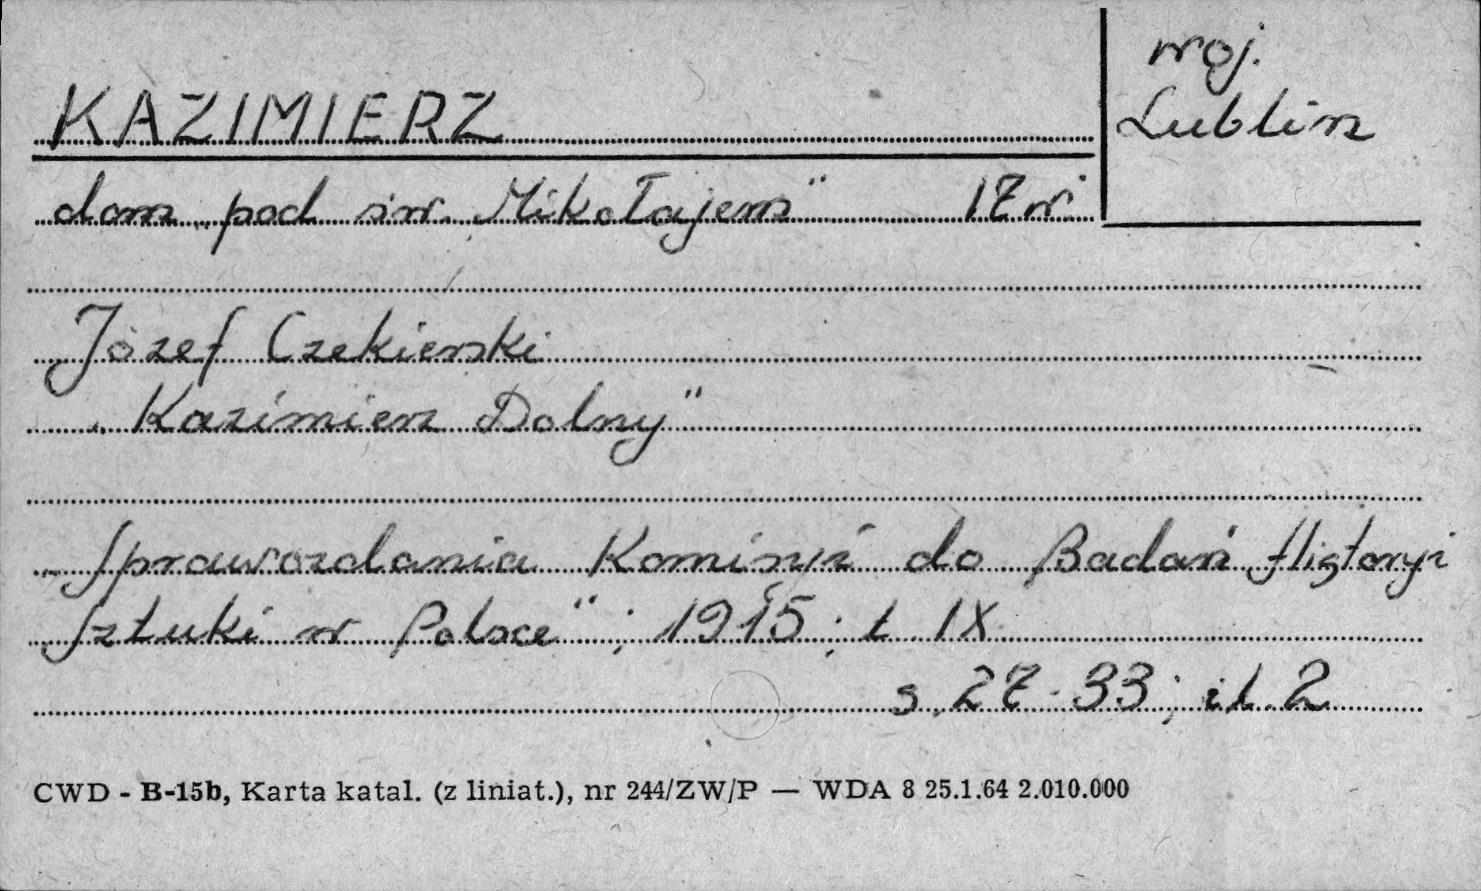 woj.
Lublin
KAZIMIERZ
dom „pod św. Mikołajem" 17 w
Józef Czekierski
„Kazimierz Dolny"
„Sprawozdania Komisyi do Badań Historyi
Sztuki w Polsce"; 1915; t IX
s. 27-33; il. 2
CWD - B-15b, Karta katal. (z liniat.), nr 244/ZW/P — WDA 8 25.1.64 2.010.000